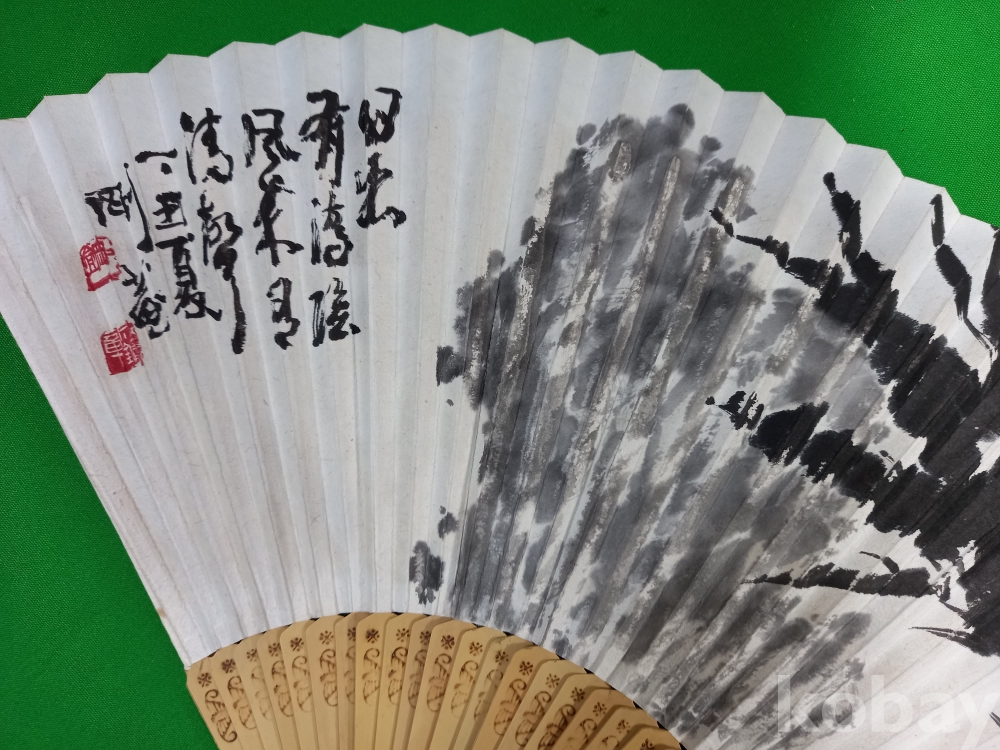 日出
有清陰
風來有
清聲
丁丑首夏
剛菴
kobay